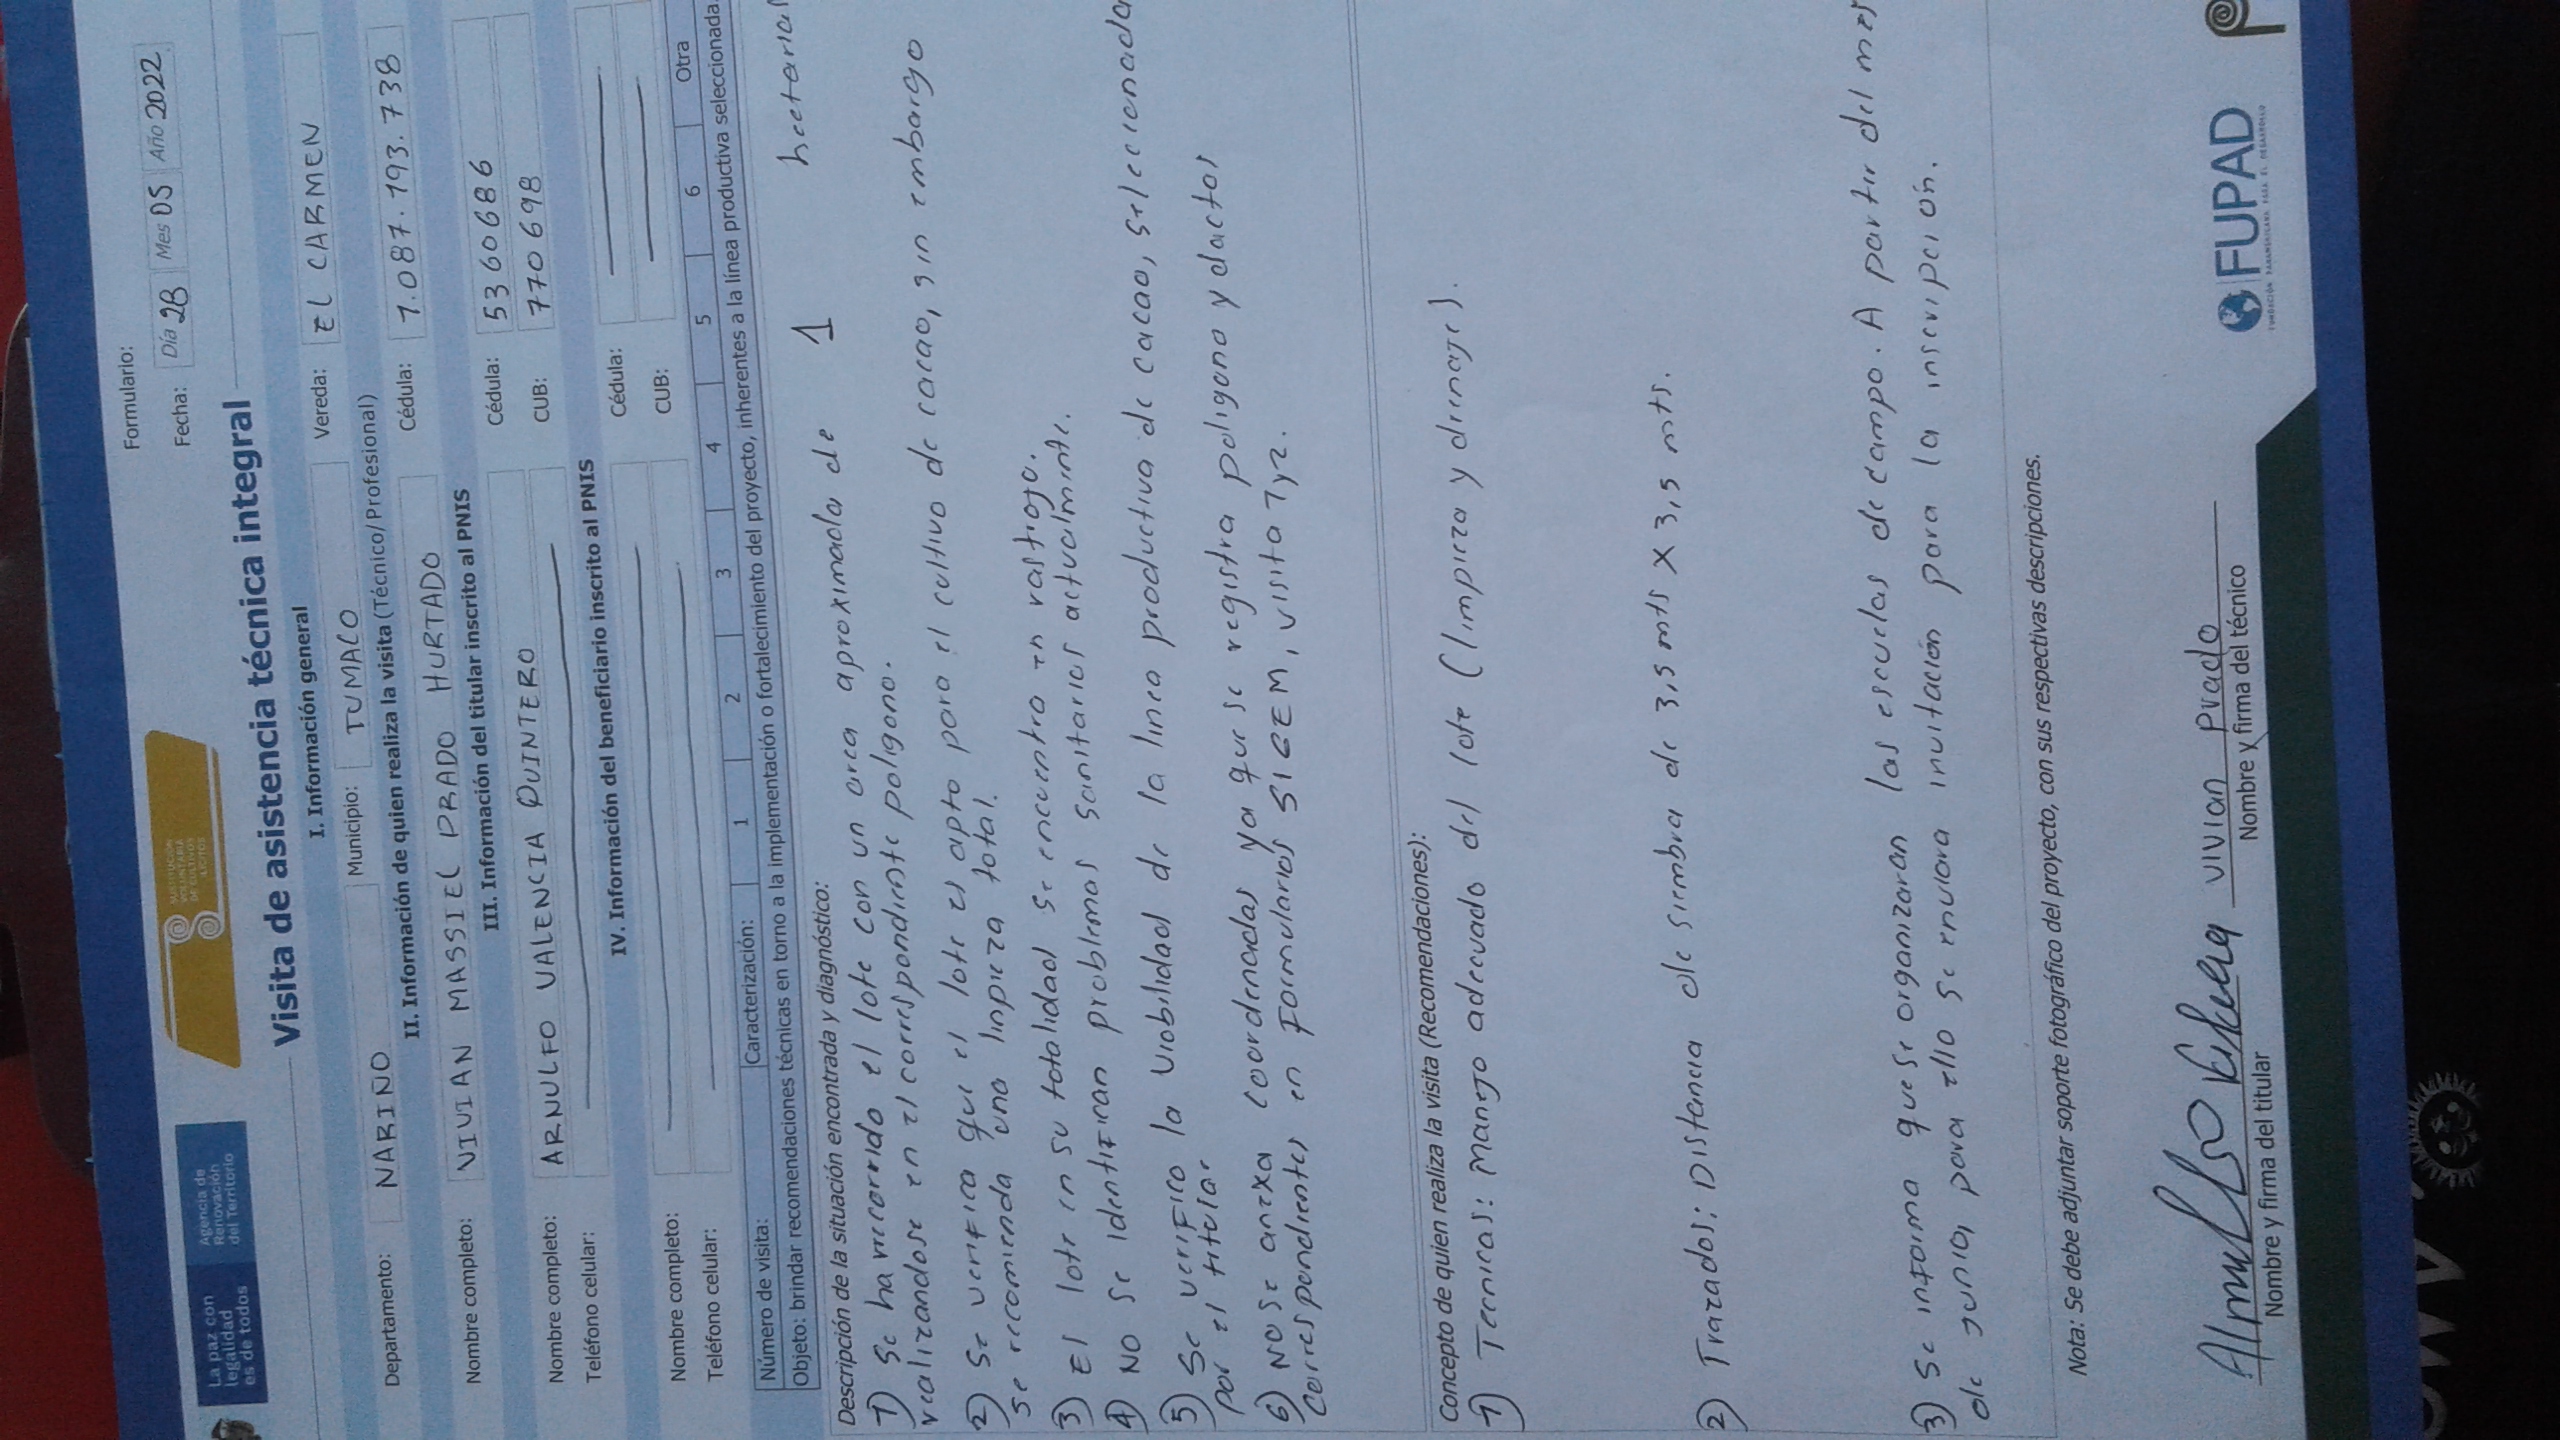 La paz con
legalidad
es de todos
Agencia de
Renovación
del Territorio
SUSTITUCIÓN
VOLUNTARIA
DE CULTIVOS
ILÍCITOS
Formulario:
Fecha: Día 28 Mes 05 Año 2022
Visita de asistencia técnica integral
I. Información general
Departamento: NARIÑO Municipio: TUMACO Vereda: El CARMEN
II. Información de quien realiza la visita (Técnico/Profesional)
Nombre completo: VIVIAN MASSIEL PRADO HURTADO Cédula: 1.087.193.738
III. Información del titular inscrito al PNIS
Nombre completo: ARNULFO VALENCIA QUINTERO Cédula: 5360686
Teléfono celular: CUB: 770698
IV. Información del beneficiario inscrito al PNIS
Nombre completo: Cédula:
Teléfono celular: CUB:
Número de visita: Caracterización: 1 2 3 4 5 6 Otra
Objeto: brindar recomendaciones técnicas en torno a la implementación o fortalecimiento del proyecto, inherentes a la línea productiva seleccionada.
Descripción de la situación encontrada y diagnóstico:
1) Se ha recorrido el lote con un area aproximada de 1 hectarias
realizandose en el correspondiente poligono.
2) Se verifica que el lote es apto para el cultivo de cacao, sin embargo
se recomienda una limpieza total.
3) El lote en su totalidad se encuentra en rastrojo.
4) NO se identifican problemas sanitarios actualmente.
5) Se verifico la viabilidad de la linea productiva de cacao, seleccionada
por el titular
6) NO se anexa coordenadas ya que se registra poligono y datos
correspondientes en formularios SIGEM, visita 1 y 2.
Concepto de quien realiza la visita (Recomendaciones):
1) Tecnicas: Manejo adecuado del lote (limpieza y drenaje).
2) Trazados: Distancia de siembra de 3,5 mts X 3,5 mts.
3) Se informa que se organizaran las escuelas de campo. A partir del mes
de junio, para ello se enviara invitación para la inscripción.
Nota: Se debe adjuntar soporte fotográfico del proyecto, con sus respectivas descripciones.
vivian prado
Nombre y firma del titular Nombre y firma del técnico
FUPAD
FUNDACIÓN PANAMERICANA PARA EL DESARROLLO